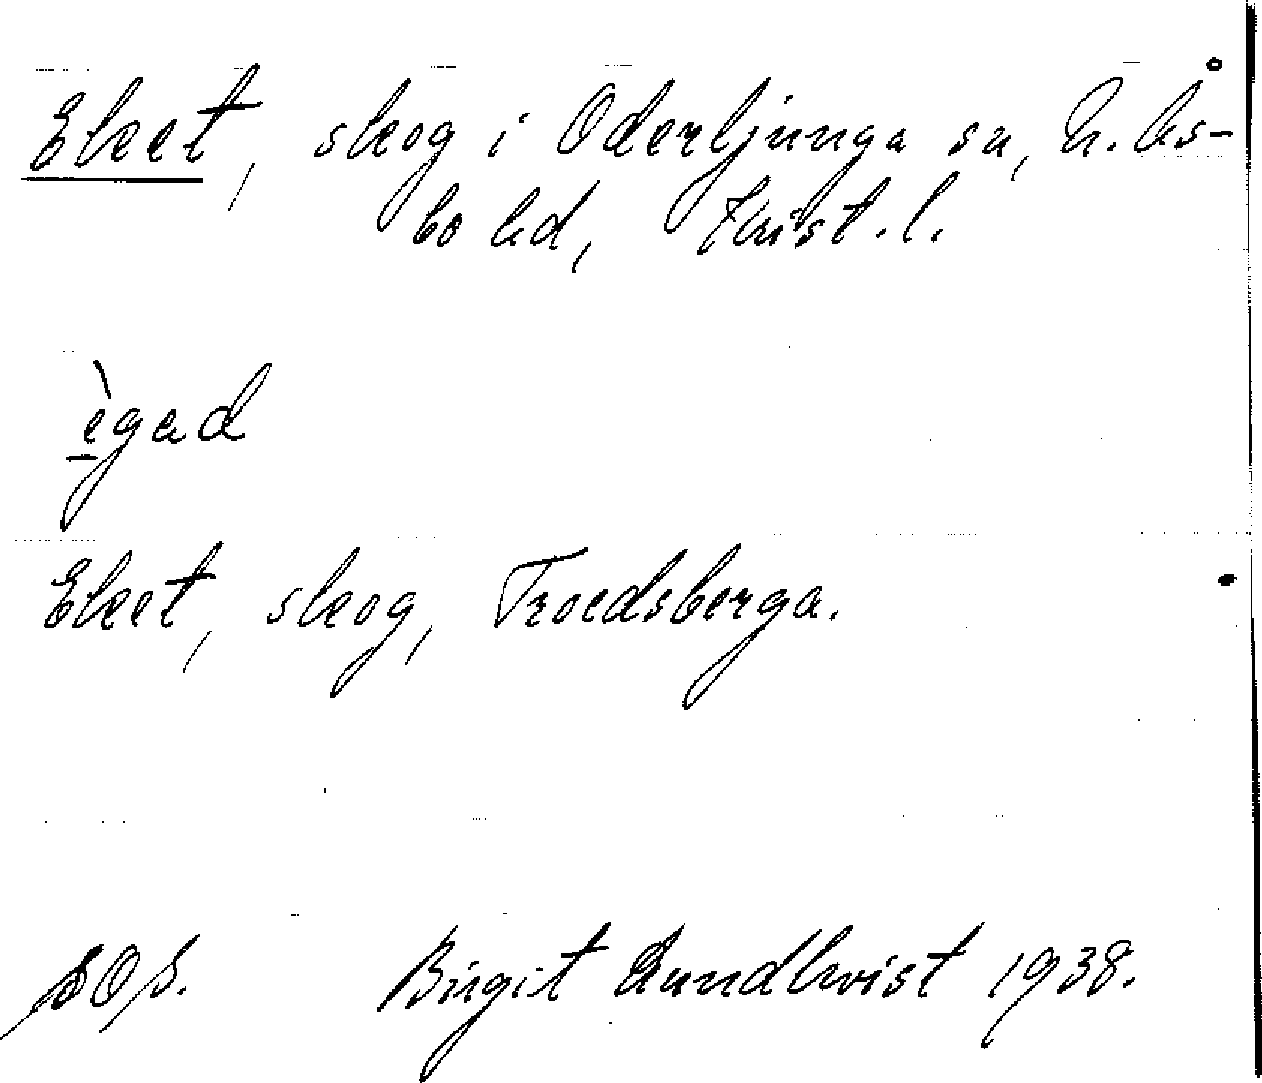 Eket, skog i Oderljunga sn, N. Ås-
bo hd, Krist. l.
ègad
Eket, skog, Troedsberga.
SOS. Birgit Lundkvist 1938.